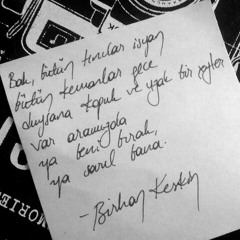 Bak, bütün tınılar isyan
bütün kemanlar gece
duysana kopuk ve uzak bir şeyler
var aramızda
ya beni bırak,
ya sarıl bana.
- Birhan Keskin
MORIE